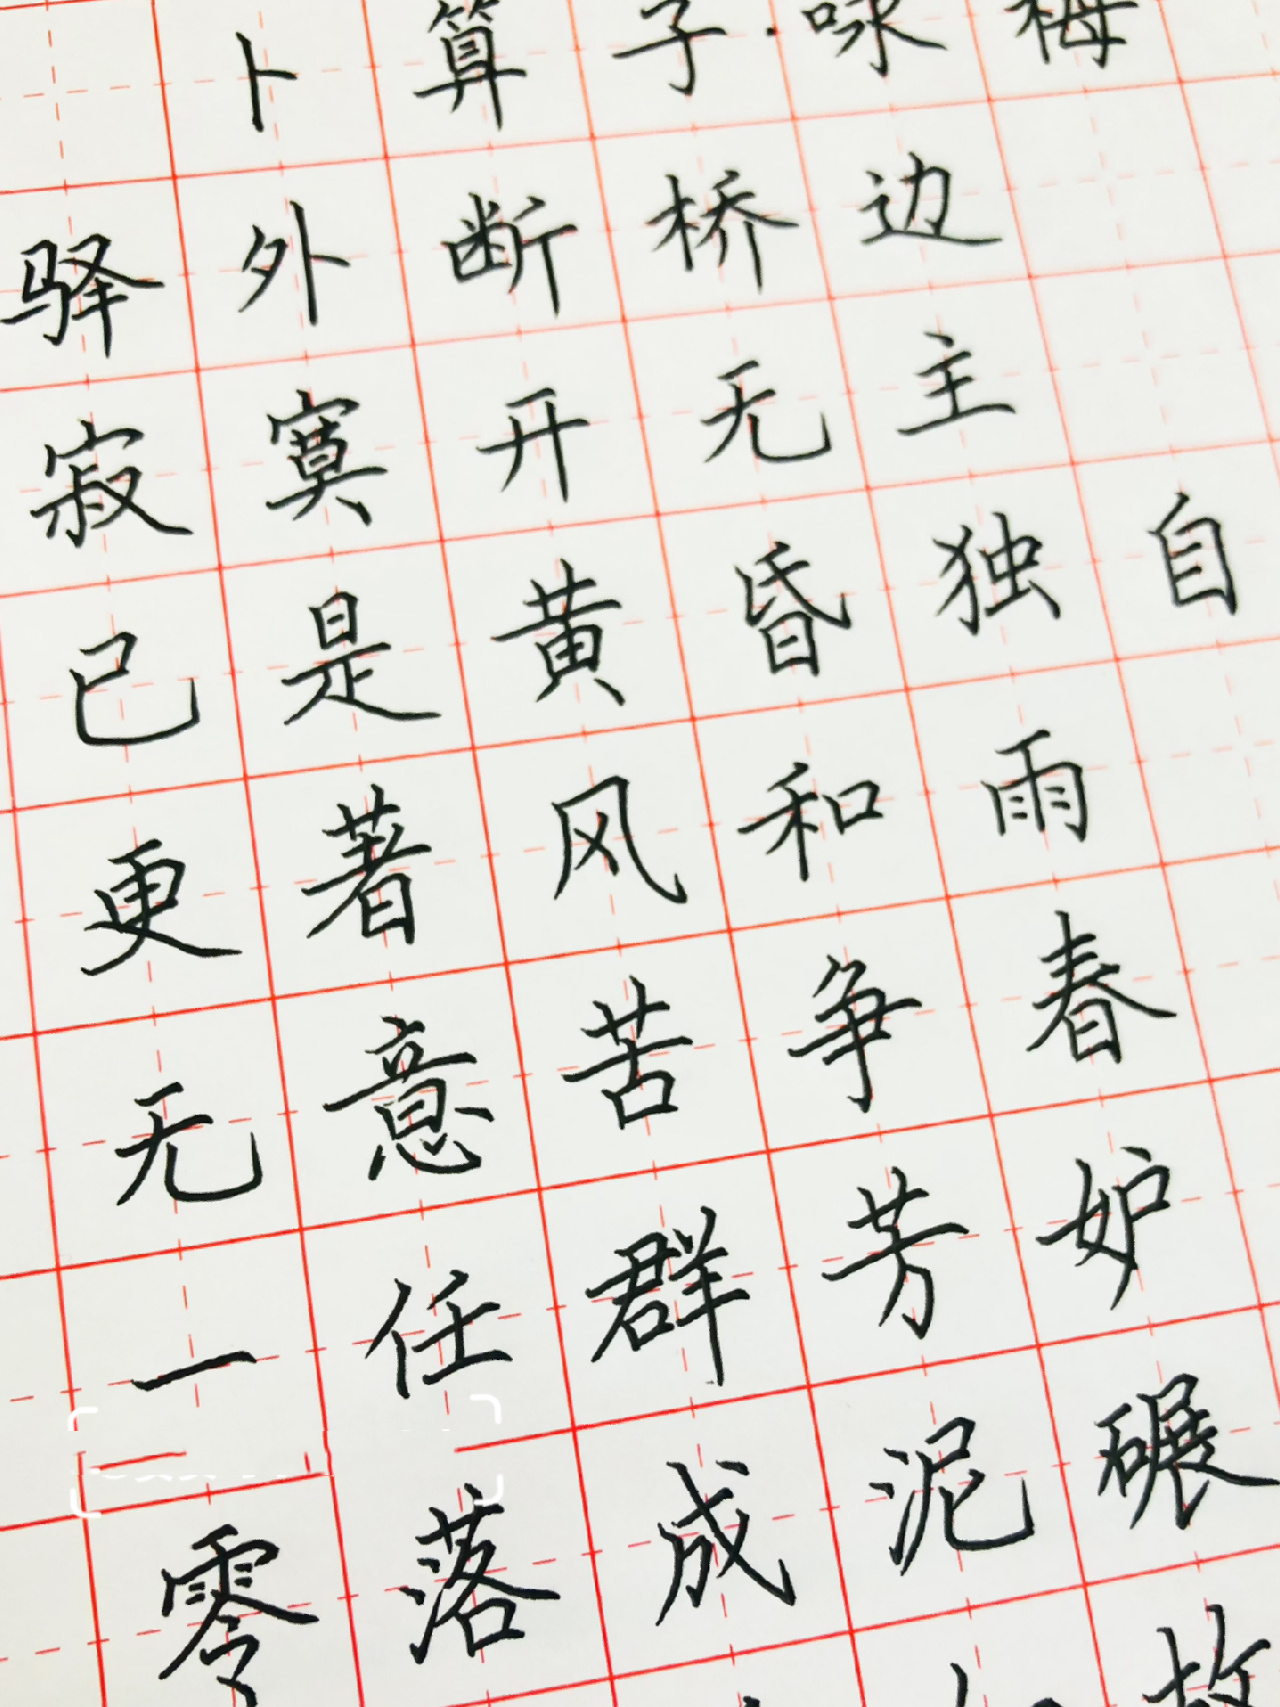 卜算子·咏梅
驿外断桥边
寂寞开无主
已是黄昏独自
更著风和雨
无意苦争春
一任群芳妒
零落成泥碾
故